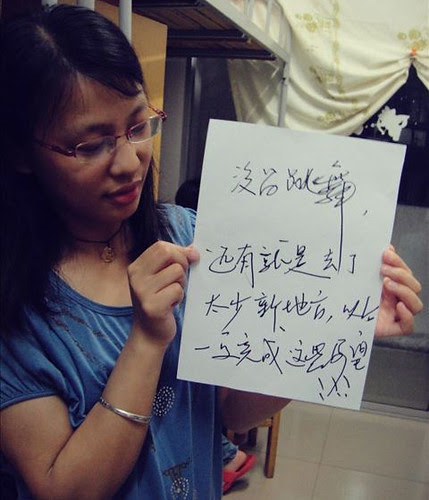 没留跳舞,
还有就是去了
太少新地方,以后
一定完成这些愿望
!!